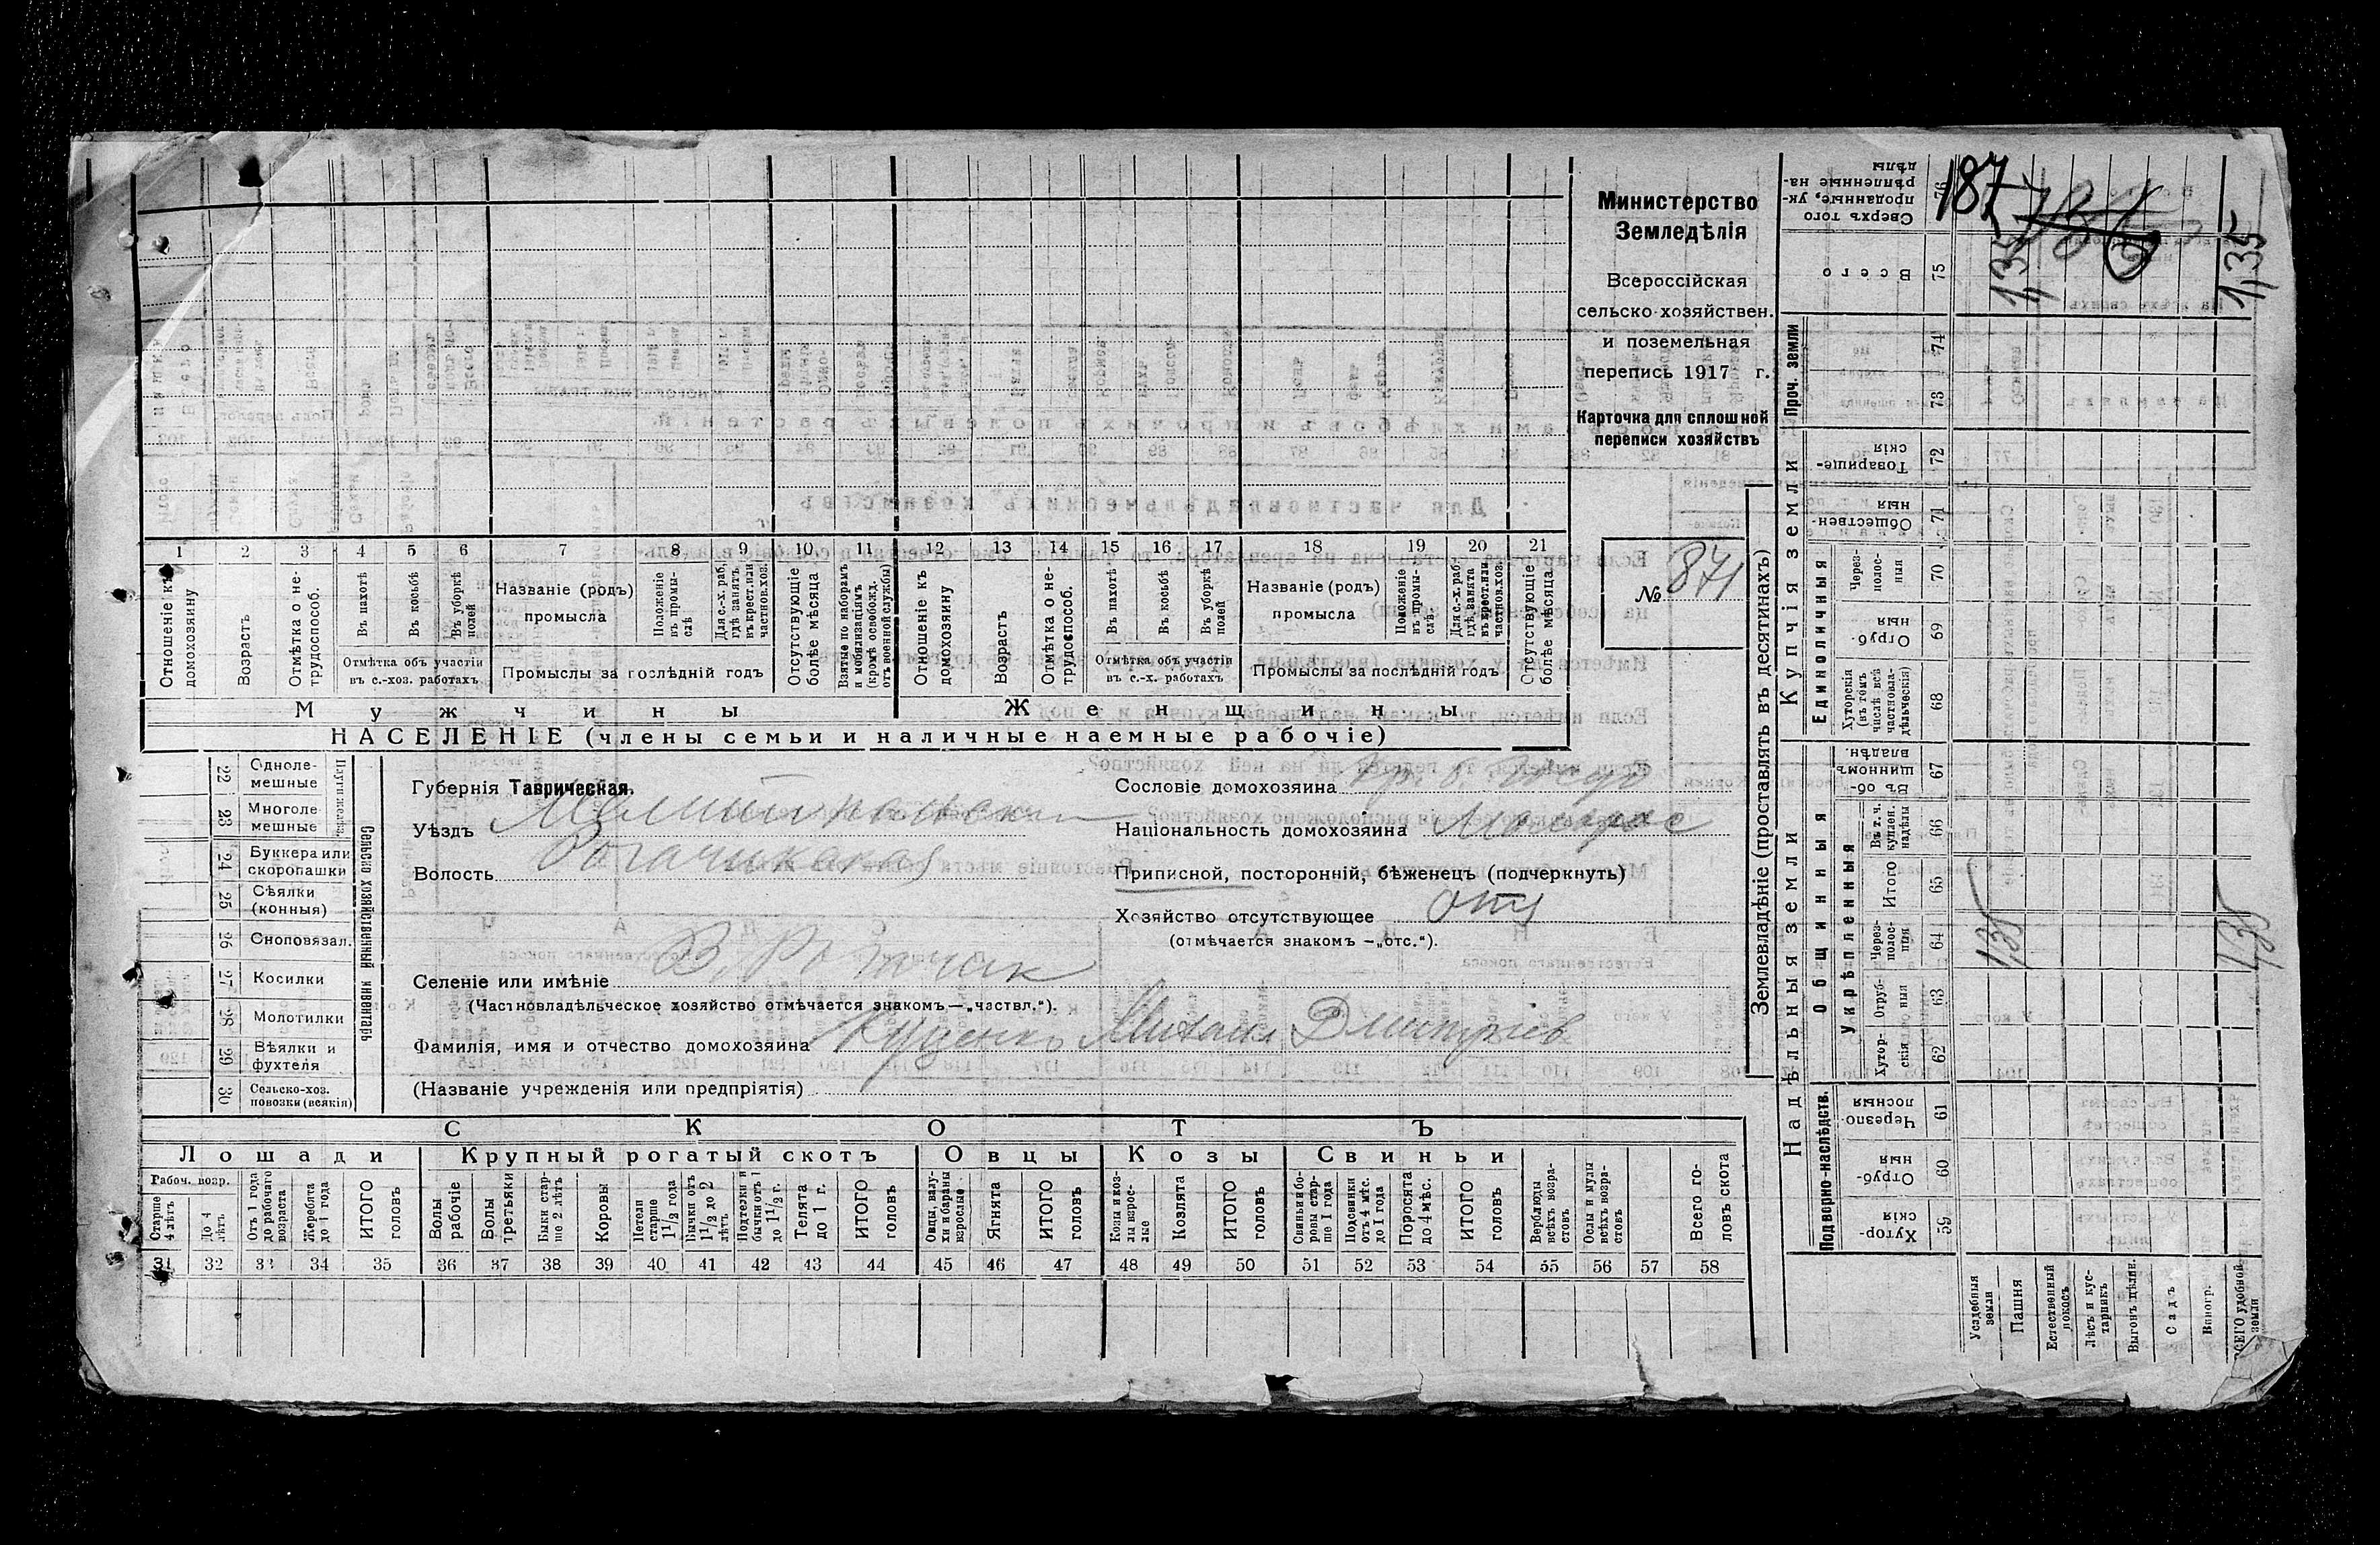 Министерство
Земледѣлія
Всероссійская
сельско-хозяйствен.
и поземельная
перепись 1917 г.
Карточка для сплошной
переписи хозяйствъ
№ 871
1 2 3 4 5 6 7 8 9 10 11 12 13 14 15 16 17 18 19 20 21
Отношеніе къ домохозяину
Возрастъ
Отмѣтка о не-трудоспособ.
Въ пахотѣ
Въ косьбѣ
Въ уборкѣ полей
Отмѣтка объ участіи
въ с.-хоз. работахъ
Названіе (родъ)
промысла
Положеніе въ промы-слѣ
Для с.-х. раб, гдѣ занятъ въ крест. или частнов. хоз.
Промыслы за послѣдній годъ
Отсутствующіе болѣе мѣсяца
Взятые по наборамъ и мобилизаціямъ (кромѣ освобожд. отъ военной службы)
Отношеніе къ домохозяину
Возрастъ
Отмѣтка о не-трудоспособ.
Въ пахотѣ
Въ косьбѣ
Въ уборкѣ полей
Отмѣтка объ участіи
въ с.-х. работахъ
Названіе (родъ)
промысла
Положеніе въ промы-слѣ
Для с.-х. раб. гдѣ занята въ крест. или частнов. хоз.
Промыслы за послѣдній годъ
Отсутствующіе болѣе мѣсяца
Мужчины Женщины
НАСЕЛЕНІЕ (члены семьи и наличные наемные рабочіе)
Сельско хозяйственный инвентарь
22 Однолемешные
23 Многолемешные
24 Буккера или скоропашки
25 Сѣялки (конныя)
26 Сноповязал.
27 Косилки
28 Молотилки
29 Вѣялки и фухтеля
30 Сельско-хоз. повозки (всякія)
Губернія Таврическая.
Уѣздъ Мелитопольск
Волость Рогачикская
Селеніе или имѣніе В. Рогачик
(Частновладѣльческое хозяйство отмѣчается знакомъ—„частвл.").
Фамилія, имя и отчество домохозяина Куценко Михаил Дмитріев
(Названіе учрежденія или предпріятія)
Сословіе домохозяина
Національность домохозяина Малорос
Приписной, посторонній, бѣженецъ (подчеркнуть)
Хозяйство отсутствующее отс
(отмѣчается знакомъ —„отс.").
СКОТЪ
Лошади Крупный рогатый скотъ Овцы Козы Свиньи
Рабоч. возр.
Старше 4 лѣтъ
До 4 лѣтъ
Отъ 1 года до рабочаго возраста
Жеребята до 1 года
ИТОГО головъ
Волы рабочіе
Волы третьяки
Быки стар-ше 2 лѣтъ
Коровы
Нетели старше 1 1/2 года
Бычки отъ 1 1/2 до 2 лѣтъ
Подтелки и бычки отъ 1 до 1 1/2 г.
Телята до 1 г.
ИТОГО головъ
Овцы, валу-хи и бараны взрослые
Ягнята
ИТОГО головъ
Козы и коз-лы взрос-лые
Козлята
ИТОГО головъ
Свиньи и бо-ровы стар-ше 1 года
Подсвинки отъ 4 мѣс. до 1 года
Поросята до 4 мѣс.
ИТОГО головъ
Верблюды всѣхъ возра-стовъ
Ослы и мулы всѣхъ возра-стовъ
Всего го-ловъ скота
31 32 33 34 35 36 37 38 39 40 41 42 43 44 45 46 47 48 49 50 51 52 53 54 55 56 57 58
Землевладѣніе (проставлять въ десятинахъ)
187
Сверхъ того проданные, ук-рѣпленные на-дѣлы 76
Всего 75 1,35 1,35
Проч. земли 74 73
Купчія земли
Товарище-скія 72
Обществен-ныя 71
Единоличныя
Через-полос-ныя 70
Отруб-ныя 69
Хуторскія (въ томъ числѣ всѣ частновла-дѣльческія) 68
Надѣльныя земли
Общинныя
Въ об-щинномъ владѣн. 67
Укрѣпленныя
Въ т. ч. куплен. надѣлы 66
Итого 65
Через-полос-ныя 64 1,35 1,35
Отруб-ныя 63
Хутор-скія 62
Подворно-наслѣдств.
Черезпо-лосныя 61
Отруб-ныя 60
Хутор-скія 59
Усадебныя земли
Пашня
Естественный покосъ
Лѣсъ и кус-тарникъ
Выгонъ цѣлин.
Садъ
Виногр.
ВСЕГО удобной земли